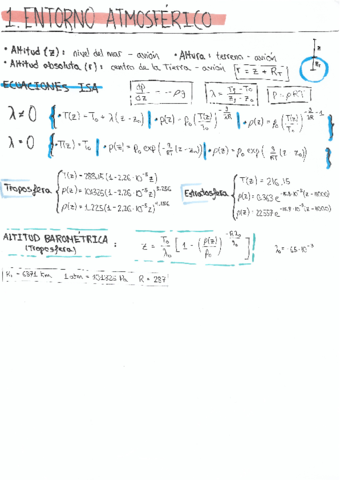 1. ENTORNO ATMOSFÉRICO
• Altitud (z): nivel del mar - avión • Altura: terreno - avión
• Altitud absoluta (r): centro de la Tierra - avión r = z + R_T
ECUACIONES ISA dp/dz = -ρg λ = (T_f - T_0)/(z_f - z_0) p = ρRT
λ ≠ 0 { • T(z) = T_0 + λ(z - z_0) • p(z) = p_0 (T(z)/T_0)^(-g/λR) • ρ(z) = ρ_0 (T(z)/T_0)^(-g/λR - 1) }
λ = 0 { • T(z) = T_0 • p(z) = p_0 exp(-g/RT (z - z_0)) • ρ(z) = ρ_0 exp(-g/RT (z - z_0)) }
Troposfera { T(z) = 288,15 (1 - 2.26·10^-5 z)
p(z) = 101325 (1 - 2.26·10^-5 z)^5.256
ρ(z) = 1.225 (1 - 2.26·10^-5 z)^4.256
Estratosfera { T(z) = 216,15
ALTITUD BAROMÉTRICA :
(Troposfera)
z = T_0/λ_0 [ 1 - (p(z)/p_0)^(-Rλ_0/g_0) ] λ_0 = -6.5·10^-3
R_T = 6371 Km, 1 atm = 101325 Pa R = 287